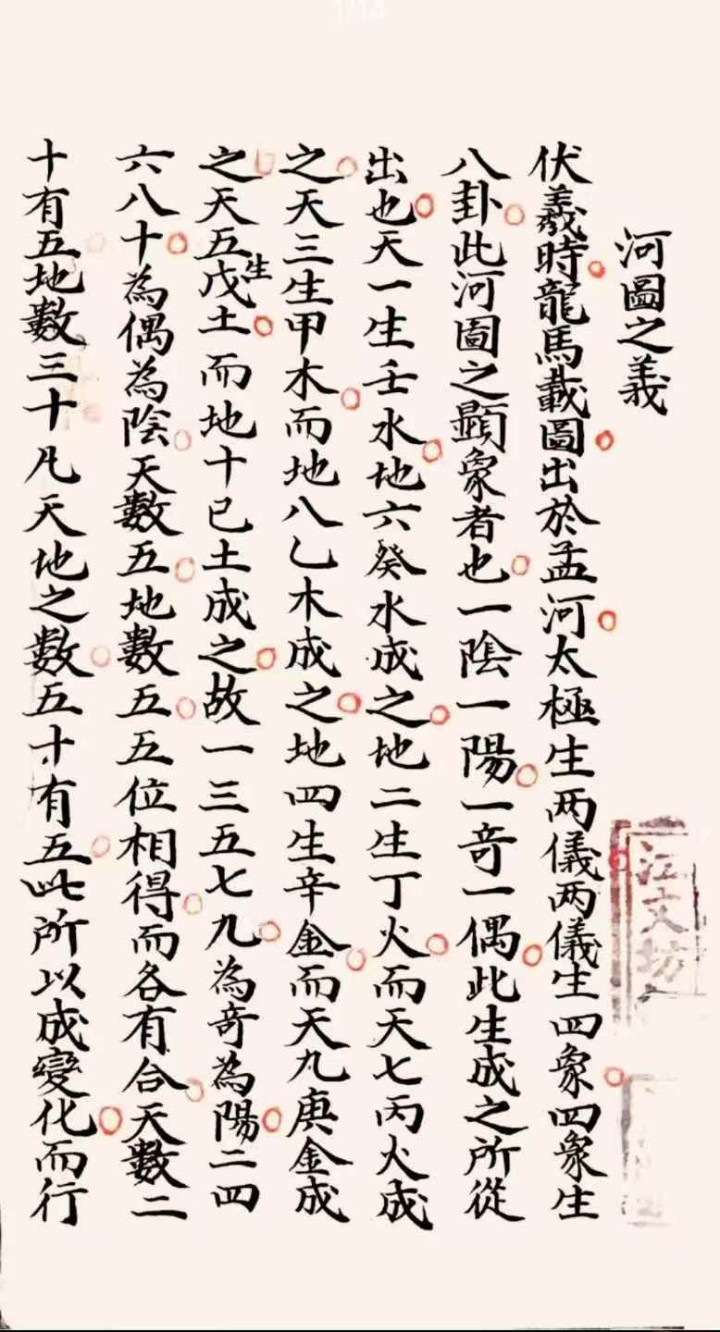 河圖之義
伏羲時龍馬載圖出於孟河太極生两儀两儀生四象四象生
八卦此河圖之顯象者也一陰一陽一竒一偶此生成之所從
出也天一生壬水地六癸水成之地二生丁火而天七丙火成
之天三生甲木而地八乙木成之地四生辛金而天九庚金成
之天五生戊土而地十已土成之故一三五七九為竒為陽二四
六八十為偶為陰天數五地數五五位相得而各有合天數二
十有五地數三十凡天地之數五十有五此所以成變化而行
江文坊